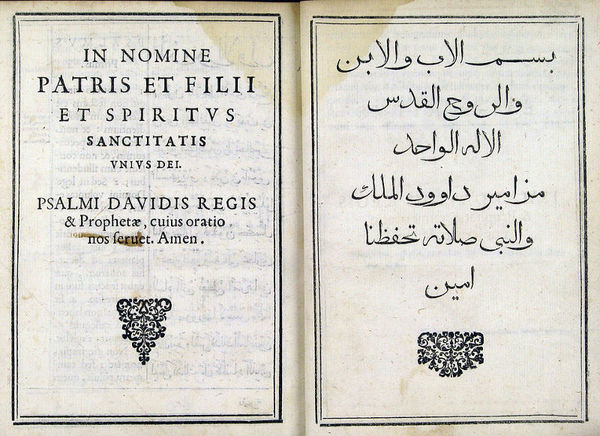 IN NOMINE
PATRIS ET FILII
ET SPIRITVS
SANCTITATIS
VNIVS DEI.
PSALMI DAVIDIS REGIS
& Prophetæ, cuius oratio
nos seruet. Amen.
بسم الاب والابن
والروح القدس
الاله الواحد
مزامير داوود الملك
والنبي صلاته تحفظنا
امين